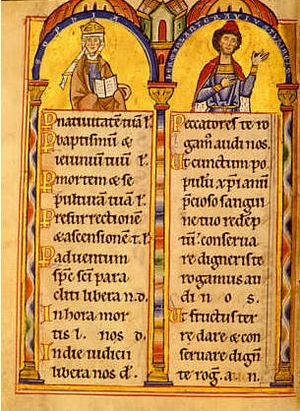 SOPHIA
LANTGRAVIVS
P nativitatē tuā l̄.
P baptismū &
ieiuniū tuū l̄.
P mortem & se
pulturā tuā l̄.
P resurrectionē
& ascensionē t. l̄.
P adventum
sp̄c sc̄i para
cliti libera n. d̄.
In hora mor
tis l̄. nos d̄.
In die iudicii
libera nos d̄.
Peccatores te ro
gam̄ audi nos.
Ut cunctum po
pulū xp̄ianū
p̄cioso sangui
ne tuo redēp
tū. conserva
re digneris te
rogamus au
di nos.
Ut fructus ter
re dare & con
servare dign̄
te roḡ. a. n.